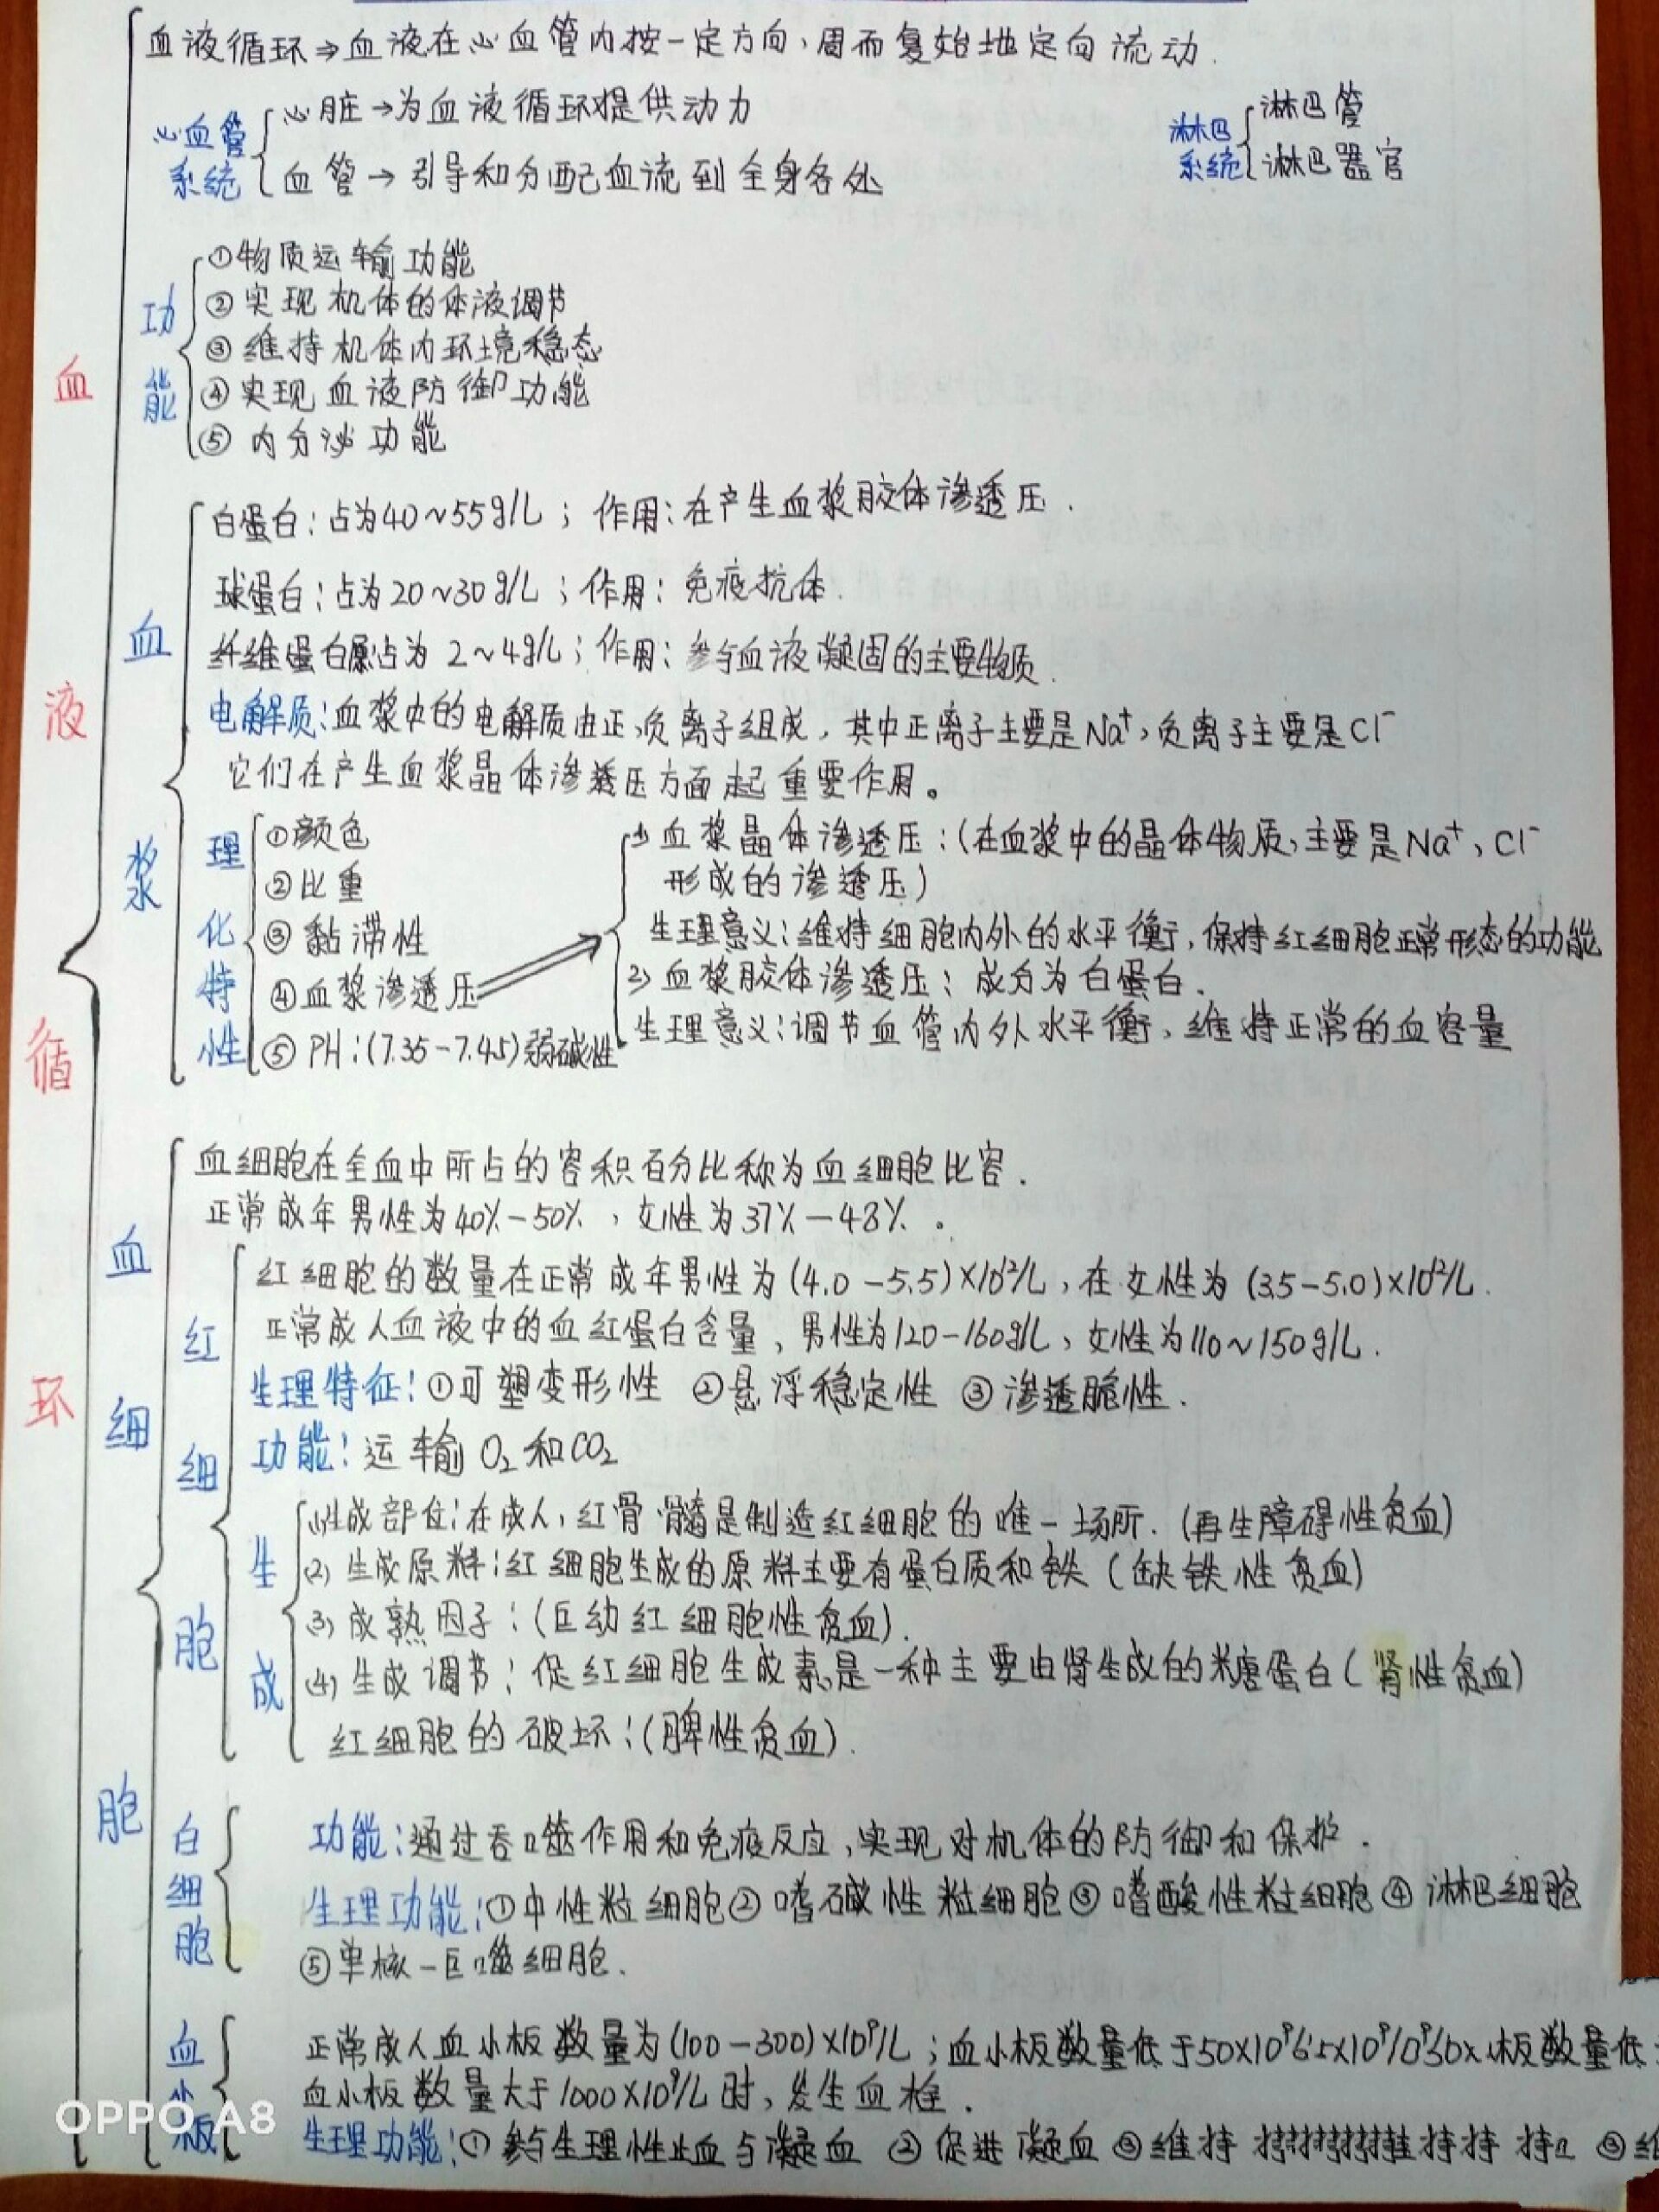 血液循环⇒血液在心血管内按一定方向，周而复始地定向流动.
心血管系统
心脏→为血液循环提供动力
血管→引导和分配血流到全身各处
淋巴系统
淋巴管
淋巴器官
功能
①物质运输功能
②实现机体的体液调节
③维持机体内环境稳态
④实现血液防御功能
⑤内分泌功能
血液循环
血浆
白蛋白:占为40~55g/L；作用:在产生血浆胶体渗透压.
球蛋白:占为20~30g/L；作用:免疫抗体.
纤维蛋白原占为2~4g/L；作用:参与血液凝固的主要物质.
电解质:血浆中的电解质由正、负离子组成，其中正离子主要是Na⁺，负离子主要是Cl⁻
它们在产生血浆晶体渗透压方面起重要作用。
理化特性
①颜色
②比重
③黏滞性
④血浆渗透压
⑤PH:(7.35-7.45)弱碱性
1)血浆晶体渗透压:(在血浆中的晶体物质，主要是Na⁺、Cl⁻
形成的渗透压)
生理意义:维持细胞内外的水平衡，保持红细胞正常形态的功能
2)血浆胶体渗透压:成分为白蛋白.
生理意义:调节血管内外水平衡，维持正常的血容量
血细胞
血细胞在全血中所占的容积百分比称为血细胞比容.
正常成年男性为40%-50%，女性为37%-48%。
红细胞
红细胞的数量在正常成年男性为(4.0-5.5)×10¹²/L，在女性为(3.5-5.0)×10¹²/L.
正常成人血液中的血红蛋白含量，男性为120-160g/L、女性为110~150g/L.
生理特征:①可塑变形性 ②悬浮稳定性 ③渗透脆性.
功能:运输O₂和CO₂
生成
性成部位:在成人，红骨髓是制造红细胞的唯一场所.(再生障碍性贫血)
(2)生成原料:红细胞生成的原料主要有蛋白质和铁(缺铁性贫血)
(3)成熟因子:(巨幼红细胞性贫血).
(4)生成调节:促红细胞生成素是一种主要由肾生成的糖蛋白(肾性贫血)
红细胞的破坏:(脾性贫血).
白细胞
功能:通过吞噬作用和免疫反应,实现对机体的防御和保护.
生理功能:①中性粒细胞②嗜碱性粒细胞③嗜酸性粒细胞④淋巴细胞
⑤单核-巨噬细胞.
血小板
正常成人血小板数量为(100-300)×10⁹/L；血小板数量低于50×10⁹ 板数量低
血小板数量大于1000×10⁹/L时，发生血栓.
生理功能:①参与生理性止血与凝血 ②促进凝血 ③维持 持持 ③维
OPPO A8